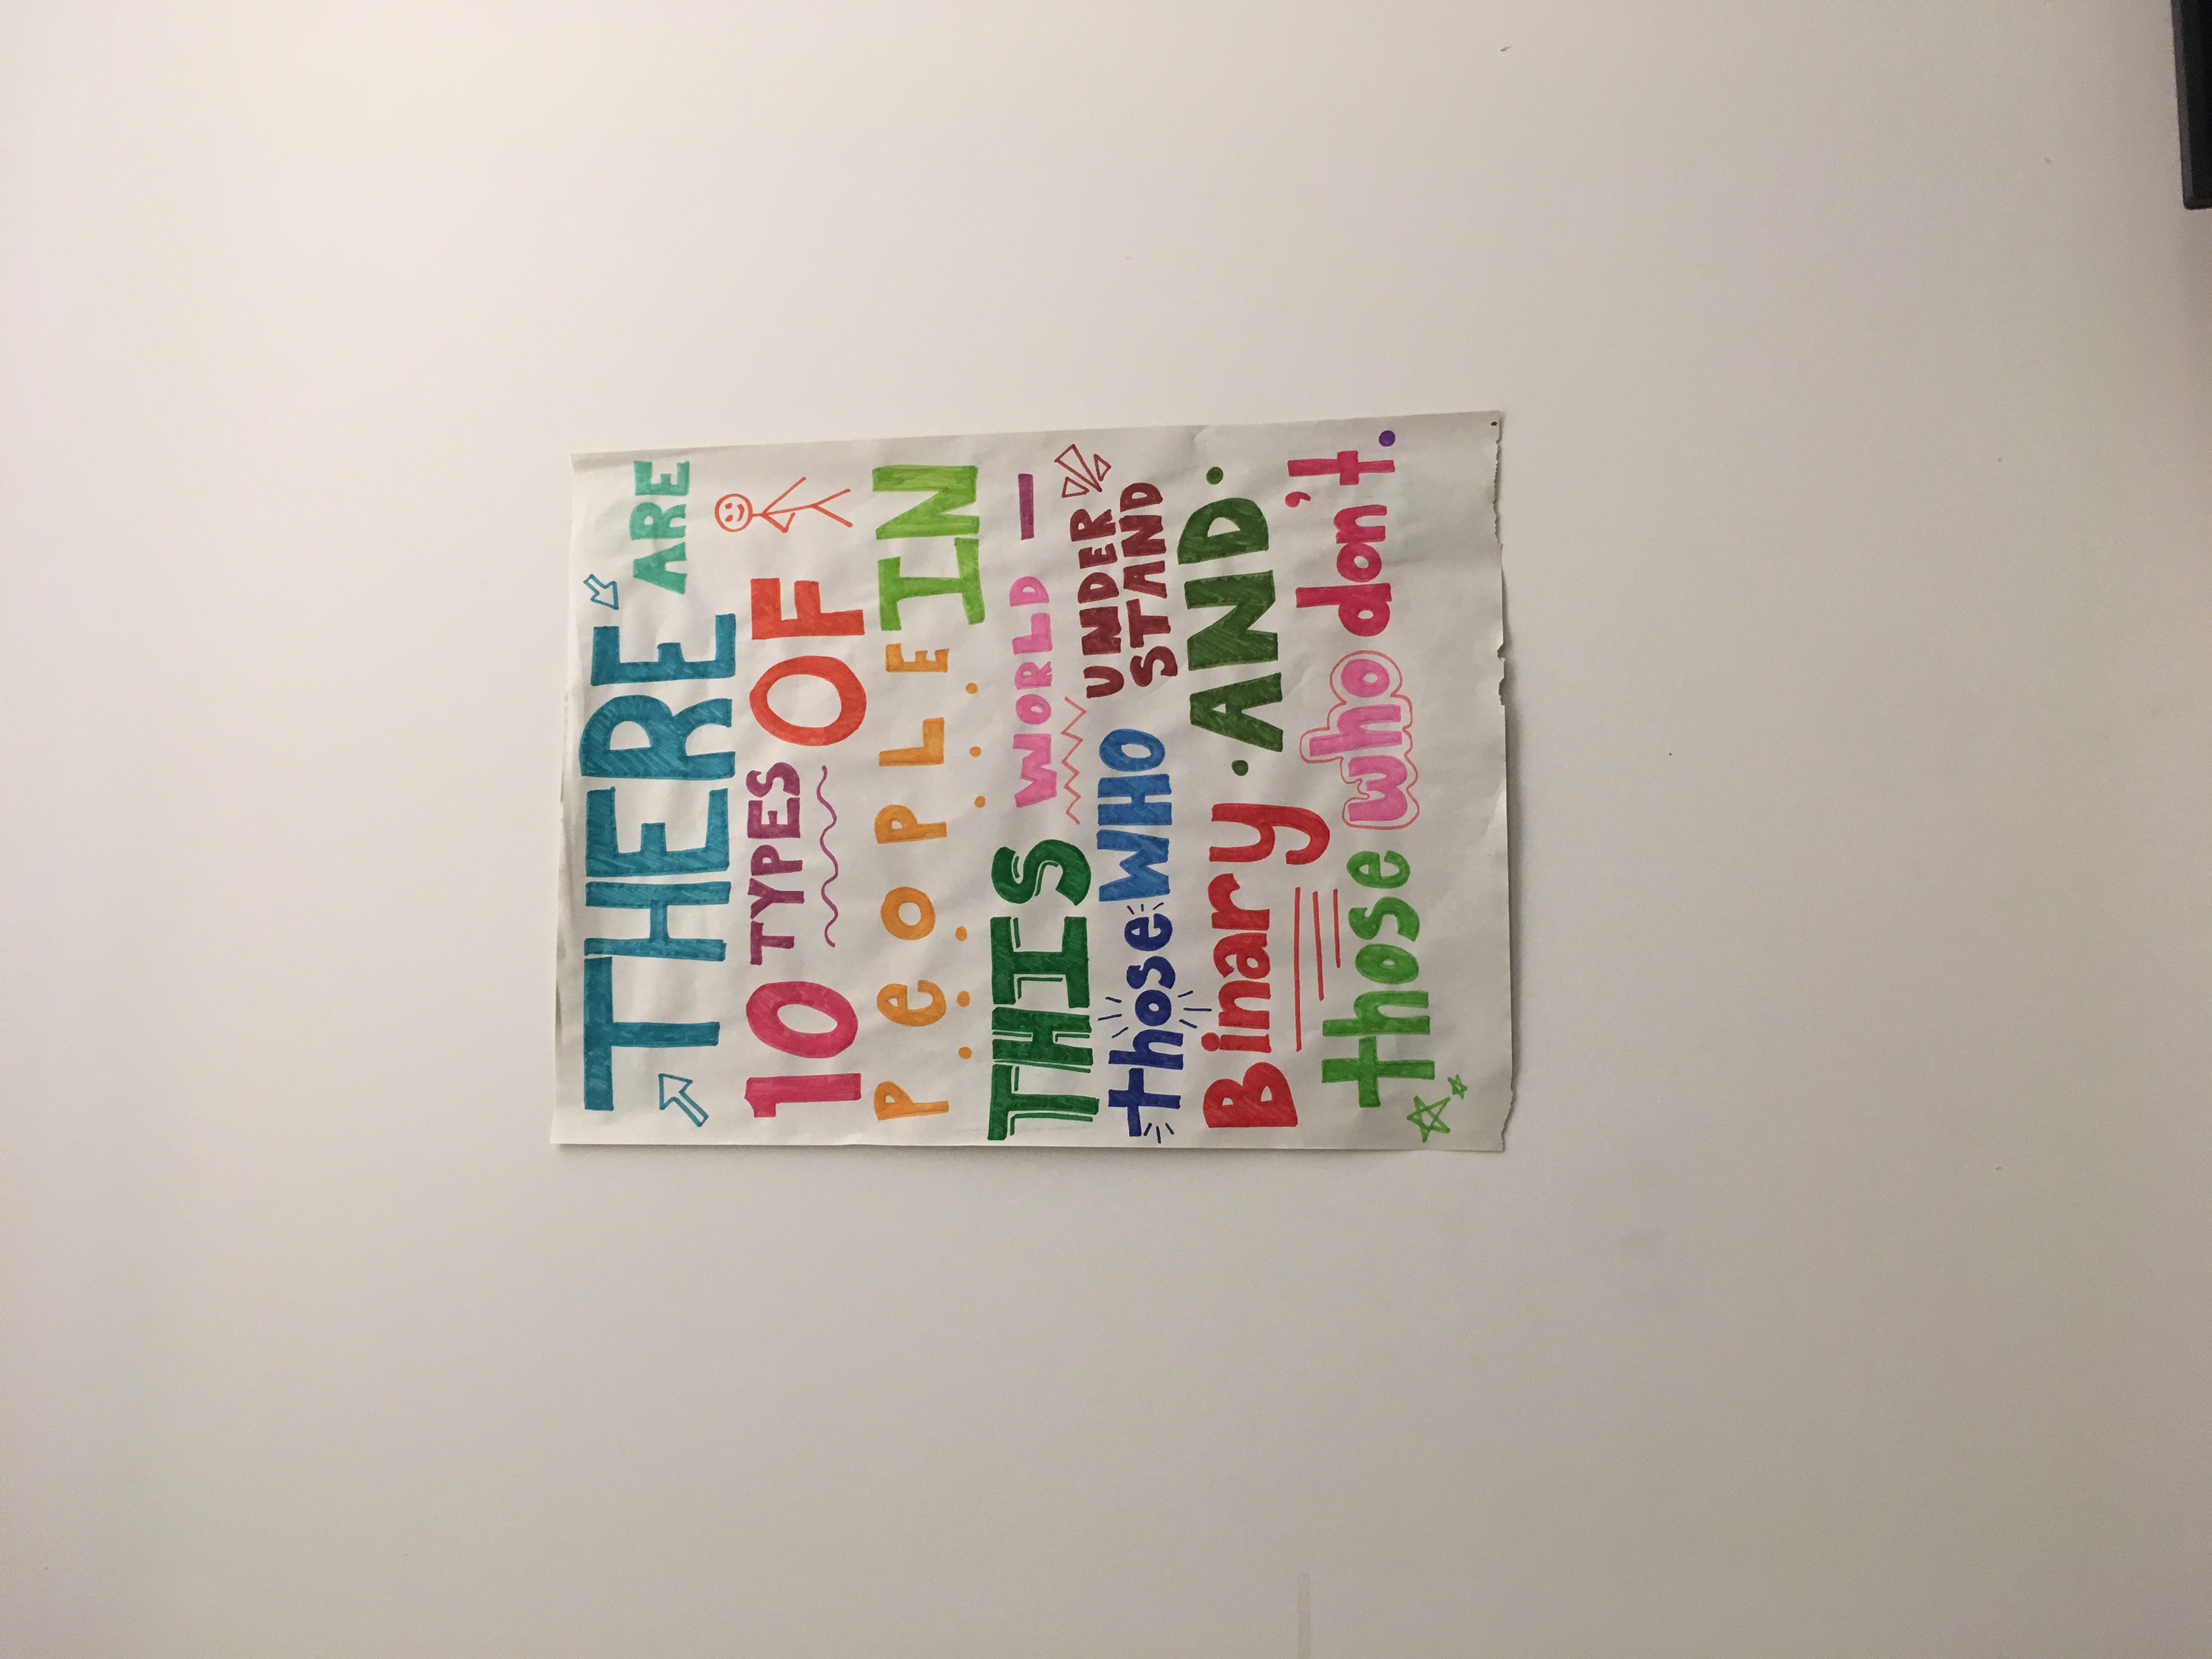 THERE ARE
10 TYPES OF
PeOPLE IN
THIS WORLD —
those WHO UNDER
STAND
Binary · AND ·
those who don't.